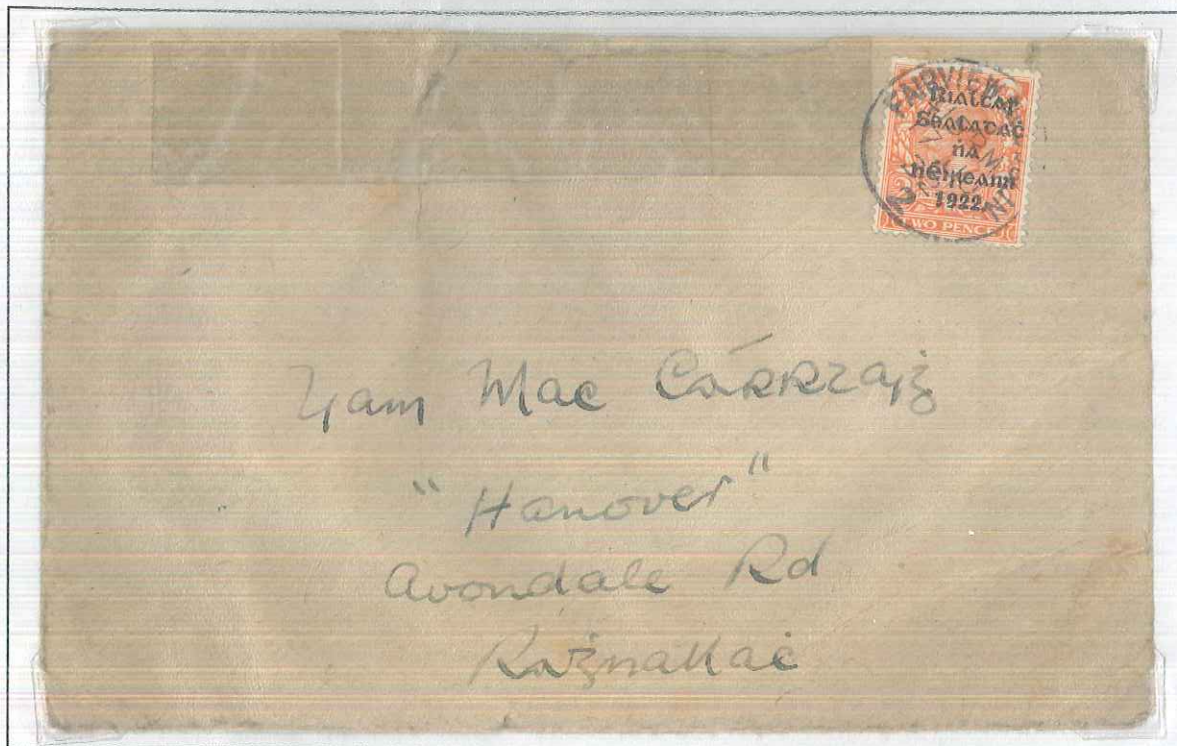 FAIRVIEW
Rialtas
Sealadaċ
na
hÉireann
1922
TWO PENCE
Liam Mac Cárrtaiġ
"Hanover"
Avondale Rd
Raġnallaċ